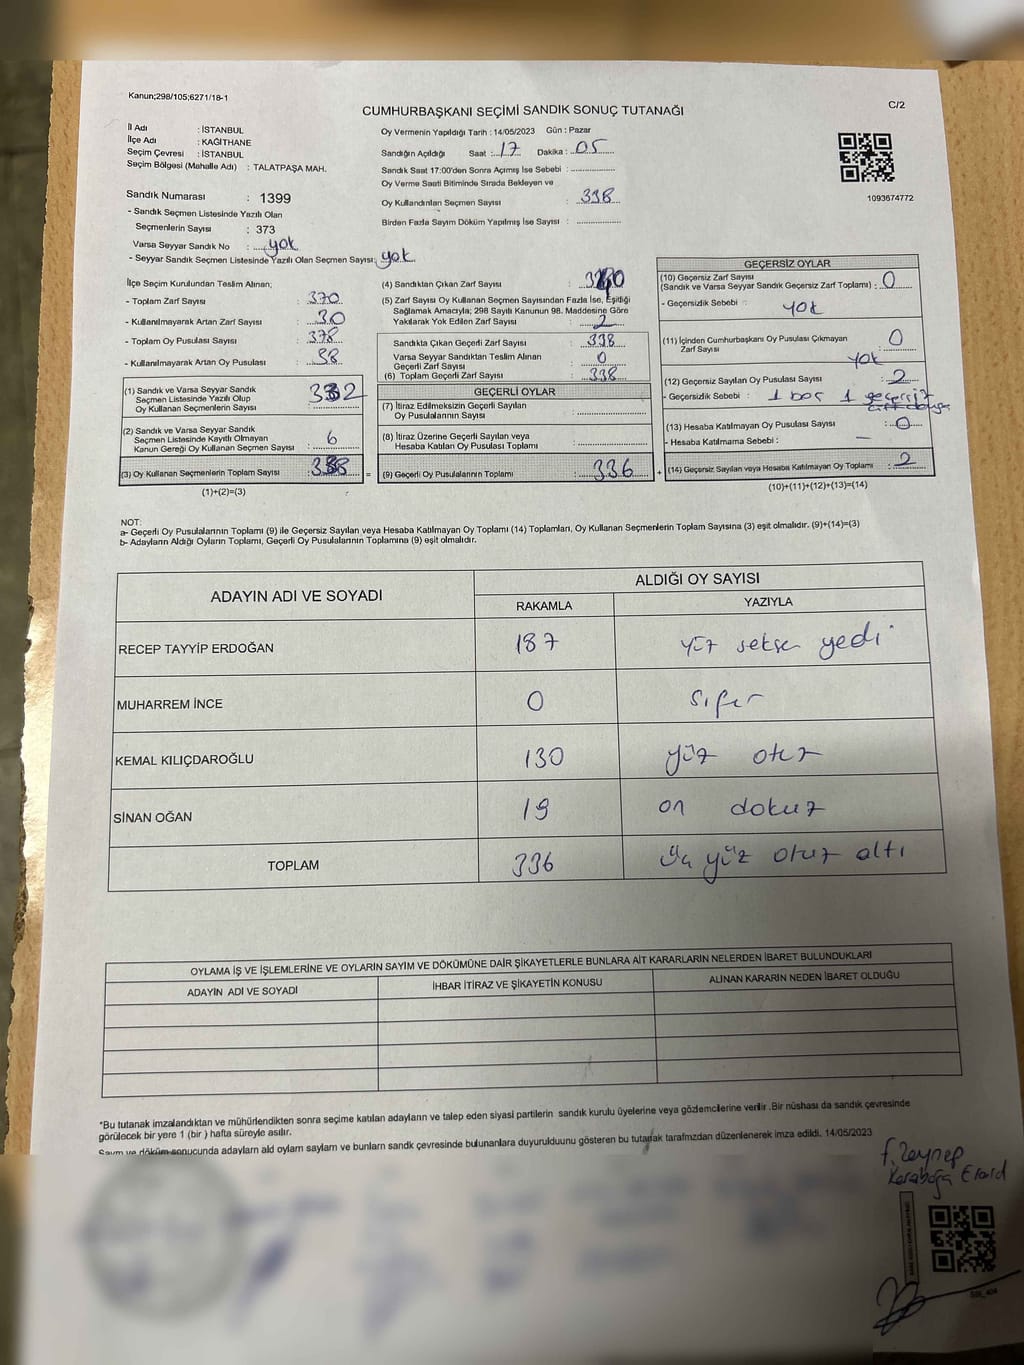 Kanun;298/105;6271/18-1
C/2
CUMHURBAŞKANI SEÇİMİ SANDIK SONUÇ TUTANAĞI
İl Adı : İSTANBUL
İlçe Adı : KAĞITHANE
Seçim Çevresi : İSTANBUL
Seçim Bölgesi (Mahalle Adı) : TALATPAŞA MAH.
Sandık Numarası : 1399
- Sandık Seçmen Listesinde Yazılı Olan
Seçmenlerin Sayısı : 373
Varsa Seyyar Sandık No : yok
- Seyyar Sandık Seçmen Listesinde Yazılı Olan Seçmen Sayısı: yok
Oy Vermenin Yapıldığı Tarih : 14/05/2023 Gün : Pazar
Sandığın Açıldığı Saat : 17 Dakika : 05
Sandık Saat 17:00'den Sonra Açımış İse Sebebi :
Oy Verme Saati Bitiminde Sırada Bekleyen ve
Oy Kullandırılan Seçmen Sayısı : 338
Birden Fazla Sayım Döküm Yapılmış İse Sayısı :
1093674772
İlçe Seçim Kurulundan Teslim Alınan;
- Toplam Zarf Sayısı : 370
- Kullanılmayarak Artan Zarf Sayısı : 30
- Toplam Oy Pusulası Sayısı : 378
- Kullanılmayarak Artan Oy Pusulası : 38
(1) Sandık ve Varsa Seyyar Sandık
Seçmen Listesinde Yazılı Olup
Oy Kullanan Seçmenlerin Sayısı : 332
(2) Sandık ve Varsa Seyyar Sandık
Seçmen Listesinde Kayıtlı Olmayan
Kanun Gereği Oy Kullanan Seçmen Sayısı : 6
(3) Oy Kullanan Seçmenlerin Toplam Sayısı : 338
(1)+(2)=(3)
(4) Sandıktan Çıkan Zarf Sayısı : 340
(5) Zarf Sayısı Oy Kullanan Seçmen Sayısından Fazla İse, Eşitliği
Sağlamak Amacıyla; 298 Sayılı Kanunun 98. Maddesine Göre
Yakılarak Yok Edilen Zarf Sayısı : 2
Sandıkta Çıkan Geçerli Zarf Sayısı : 338
Varsa Seyyar Sandıktan Teslim Alınan
Geçerli Zarf Sayısı : 0
(6) Toplam Geçerli Zarf Sayısı : 338
GEÇERLİ OYLAR
(7) İtiraz Edilmeksizin Geçerli Sayılan
Oy Pusulalarının Sayısı :
(8) İtiraz Üzerine Geçerli Sayılan veya
Hesaba Katılan Oy Pusulası Toplamı :
= (9) Geçerli Oy Pusulalarının Toplamı : 336
GEÇERSİZ OYLAR
(10) Geçersiz Zarf Sayısı
(Sandık ve Varsa Seyyar Sandık Geçersiz Zarf Toplamı) : 0
- Geçersizlik Sebebi : yok
(11) İçinden Cumhurbaşkanı Oy Pusulası Çıkmayan
Zarf Sayısı : 0
yok
(12) Geçersiz Sayılan Oy Pusulası Sayısı : 2
- Geçersizlik Sebebi : 1 boş 1 geçersiz
(13) Hesaba Katılmayan Oy Pusulası Sayısı : 0
- Hesaba Katılmama Sebebi : —
+ (14) Geçersiz Sayılan veya Hesaba Katılmayan Oy Toplamı : 2
(10)+(11)+(12)+(13)=(14)
NOT:
a- Geçerli Oy Pusulalarının Toplamı (9) ile Geçersiz Sayılan veya Hesaba Katılmayan Oy Toplamı (14) Toplamları, Oy Kullanan Seçmenlerin Toplam Sayısına (3) eşit olmalıdır. (9)+(14)=(3)
b- Adayların Aldığı Oyların Toplamı, Geçerli Oy Pusulalarının Toplamına (9) eşit olmalıdır.
ADAYIN ADI VE SOYADI ALDIĞI OY SAYISI
RAKAMLA YAZIYLA
RECEP TAYYİP ERDOĞAN 187 yüz seksen yedi
MUHARREM İNCE 0 sıfır
KEMAL KILIÇDAROĞLU 130 yüz otuz
SİNAN OĞAN 19 on dokuz
TOPLAM 336 üç yüz otuz altı
OYLAMA İŞ VE İŞLEMLERİNE VE OYLARIN SAYIM VE DÖKÜMÜNE DAİR ŞİKAYETLERLE BUNLARA AİT KARARLARIN NELERDEN İBARET BULUNDUKLARI
ADAYIN ADI VE SOYADI İHBAR İTİRAZ VE ŞİKAYETİN KONUSU ALINAN KARARIN NEDEN İBARET OLDUĞU
*Bu tutanak imzalandıktan ve mühürlendikten sonra seçime katılan adayların ve talep eden siyasi partilerin sandık kurulu üyelerine veya gözlemcilerine verilir .Bir nüshası da sandık çevresinde
görülecek bir yere 1 (bir ) hafta süreyle asılır.
Sayım ve döküm sonucunda adayların ald oyların sayların ve bunların sandk çevresinde bulunanlara duyurulduunu gösteren bu tutanak tarafmzdan düzenlenerek imza edildi. 14/05/2023
f. Zeynep
Karaboğa